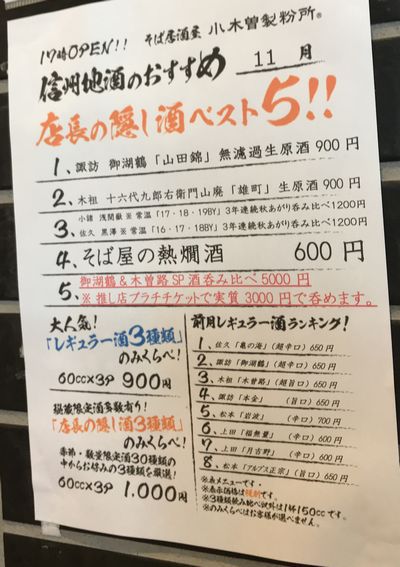 17時OPEN!! そば居酒屋 小木曽製粉所®
信州地酒のおすすめ 11月
店長の隠し酒ベスト5!!
1、諏訪 御湖鶴「山田錦」無濾過生原酒 900円
2、木祖 十六代九郎右衛門山廃「雄町」生原酒 900円
3、小諸 浅間嶽 ※常温「17・18・19BY」3年連続秋あがり呑み比べ1200円
佐久 黒澤 ※常温「16・17・18BY」3年連続秋あがり呑み比べ1200円
4、そば屋の熱燗酒 600円
5、御湖鶴&木曽路SP酒呑み比べ5000円
※推し店プラチケットで実質3000円で呑めます。
大人気!
「レギュラー酒3種類」
のみくらべ!
60cc×3夕 900円
秘蔵限定酒多数有り!
「店長の隠し酒3種類」
のみくらべ!
希少・数量限定酒30種類の
中からお好みの3種類を厳選!
60cc×3夕 1.000円
前月レギュラー酒ランキング!
1、佐久「亀の海」(超辛口)650円
2、諏訪「御湖鶴」(超辛口)650円
3、木祖「木曽路」(超旨口)650円
4、諏訪「本金」(旨口)650円
5、松本「岩波」(辛口)700円
6、上田「福無量」(辛口)600円
7、上田「月吉野」(辛口)600円
8、松本「アルプス正宗」(旨口)650円
※表メニューです・
※表示価格は税別です。
※3種類飲み比べ以外は1杯150ccです。
※のみくらべはお客様が選べません。